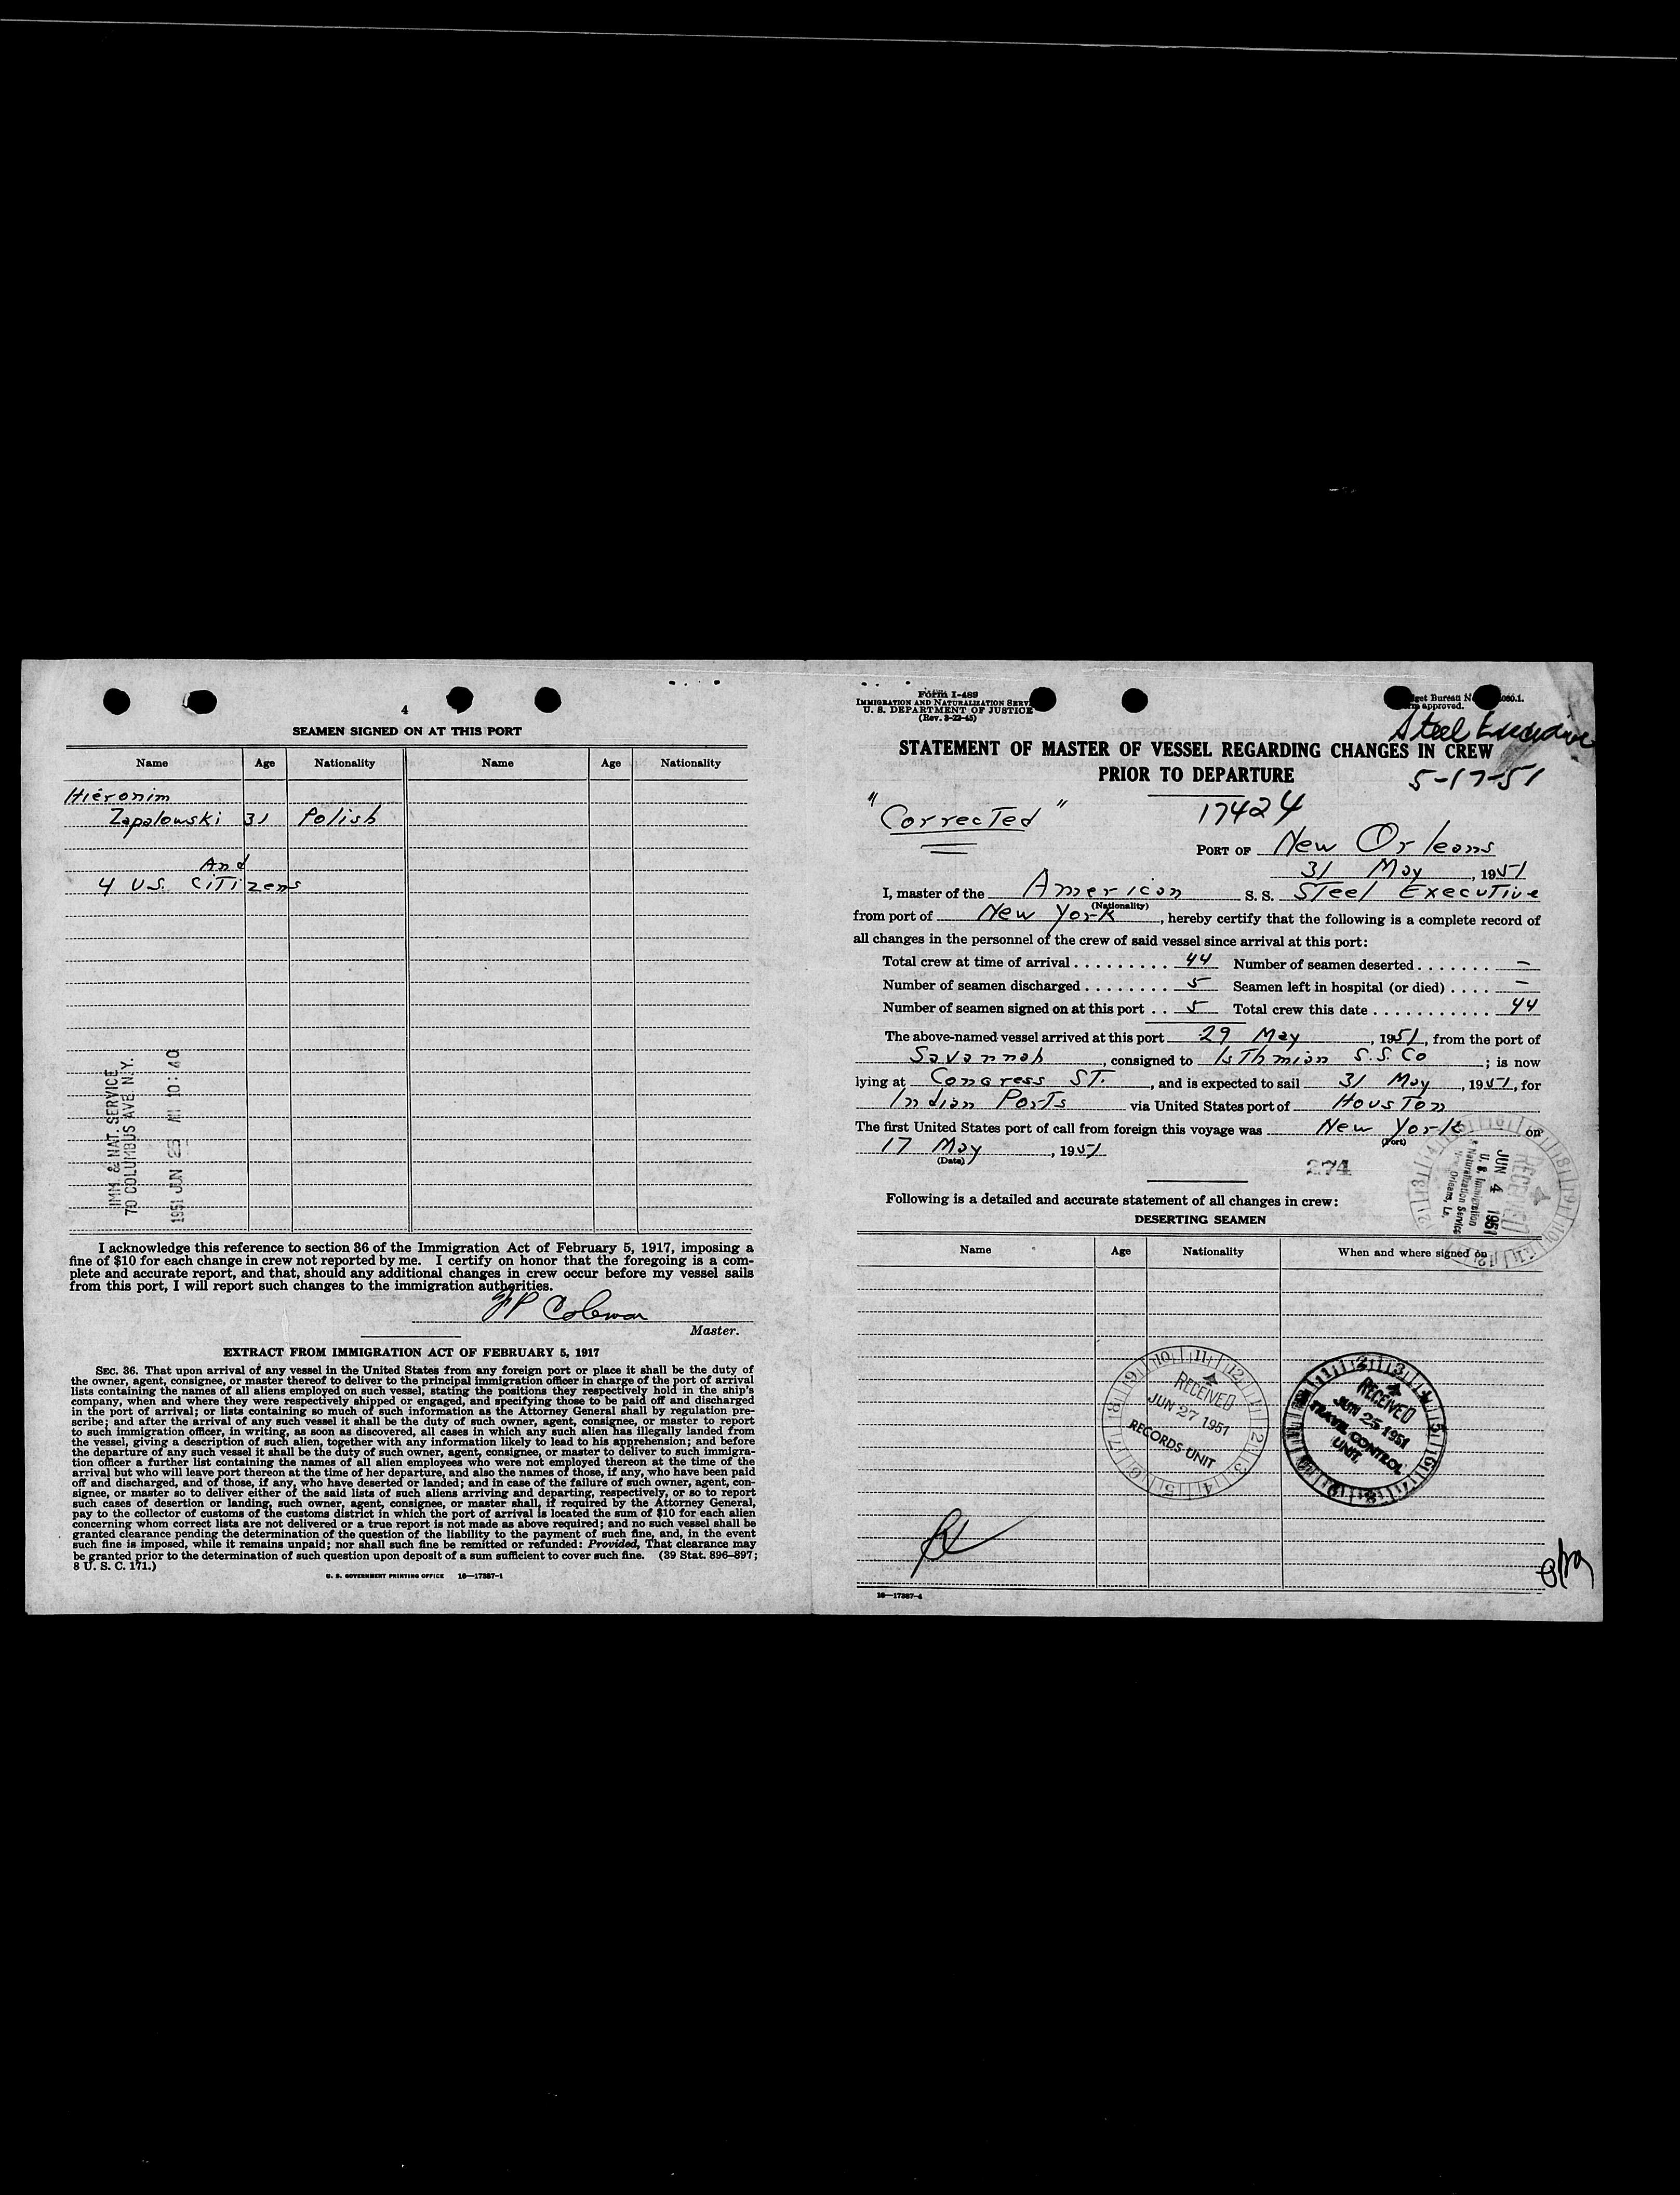 4
SEAMEN SIGNED ON AT THIS PORT
Name Age Nationality Name Age Nationality
Hieronim
Zapalowski 31 Polish
And
4 U.S. Citizens
IMM. & NAT. SERVICE
70 COLUMBUS AVE. N.Y.
1951 JUN 25 AM 10:40
I acknowledge this reference to section 36 of the Immigration Act of February 5, 1917, imposing a
fine of $10 for each change in crew not reported by me. I certify on honor that the foregoing is a com-
plete and accurate report, and that, should any additional changes in crew occur before my vessel sails
from this port, I will report such changes to the immigration authorities.
Master.
EXTRACT FROM IMMIGRATION ACT OF FEBRUARY 5, 1917
SEC. 36. That upon arrival of any vessel in the United States from any foreign port or place it shall be the duty of
the owner, agent, consignee, or master thereof to deliver to the principal immigration officer in charge of the port of arrival
lists containing the names of all aliens employed on such vessel, stating the positions they respectively hold in the ship's
company, when and where they were respectively shipped or engaged, and specifying those to be paid off and discharged
in the port of arrival; or lists containing so much of such information as the Attorney General shall by regulation pre-
scribe; and after the arrival of any such vessel it shall be the duty of such owner, agent, consignee, or master to report
to such immigration officer, in writing, as soon as discovered, all cases in which any such alien has illegally landed from
the vessel, giving a description of such alien, together with any information likely to lead to his apprehension; and before
the departure of any such vessel it shall be the duty of such owner, agent, consignee, or master to deliver to such immigra-
tion officer a further list containing the names of all alien employees who were not employed thereon at the time of the
arrival but who will leave port thereon at the time of her departure, and also the names of those, if any, who have been paid
off and discharged, and of those, if any, who have deserted or landed; and in case of the failure of such owner, agent, con-
signee, or master so to deliver either of the said lists of such aliens arriving and departing, respectively, or so to report
such cases of desertion or landing, such owner, agent, consignee, or master shall, if required by the Attorney General,
pay to the collector of customs of the customs district in which the port of arrival is located the sum of $10 for each alien
concerning whom correct lists are not delivered or a true report is not made as above required; and no such vessel shall be
granted clearance pending the determination of the question of the liability to the payment of such fine, and, in the event
such fine is imposed, while it remains unpaid; nor shall such fine be remitted or refunded: Provided, That clearance may
be granted prior to the determination of such question upon deposit of a sum sufficient to cover such fine. (39 Stat. 896–897;
8 U. S. C. 171.)
U. S. GOVERNMENT PRINTING OFFICE 16—17387-1
Form I-489
IMMIGRATION AND NATURALIZATION
U. S. DEPARTMENT OF JUSTICE
(Rev. 3-22-45)
Bureau
approved.
Steel Executive
5-17-51
STATEMENT OF MASTER OF VESSEL REGARDING CHANGES IN CREW
PRIOR TO DEPARTURE
"Corrected"
17424
PORT OF New Orleans
31 May, 1951
I, master of the American S. S. Steel Executive
(Nationality)
from port of New York, hereby certify that the following is a complete record of
all changes in the personnel of the crew of said vessel since arrival at this port:
Total crew at time of arrival . . . . . . . . . 44 Number of seamen deserted . . . . . . . –
Number of seamen discharged . . . . . . . . 5 Seamen left in hospital (or died) . . . . –
Number of seamen signed on at this port . . 5 Total crew this date . . . . . . . . . . . 44
The above-named vessel arrived at this port 29 May, 1951, from the port of
Savannah, consigned to Isthmian S.S. Co; is now
lying at Congress ST., and is expected to sail 31 May, 1951, for
Indian Ports via United States port of Houston
The first United States port of call from foreign this voyage was New York on
(Port)
17 May, 1951
(Date)
274
RECEIVED
JUN 4 1951
U. S. Immigration
Naturalization Service
New Orleans, La.
Following is a detailed and accurate statement of all changes in crew:
DESERTING SEAMEN
Name Age Nationality When and where signed on
RECEIVED
JUN 27 1951
RECORDS UNIT
RECEIVED
JUN 25 1951
TRAVEL CONTROL
UNIT
16—17387-4